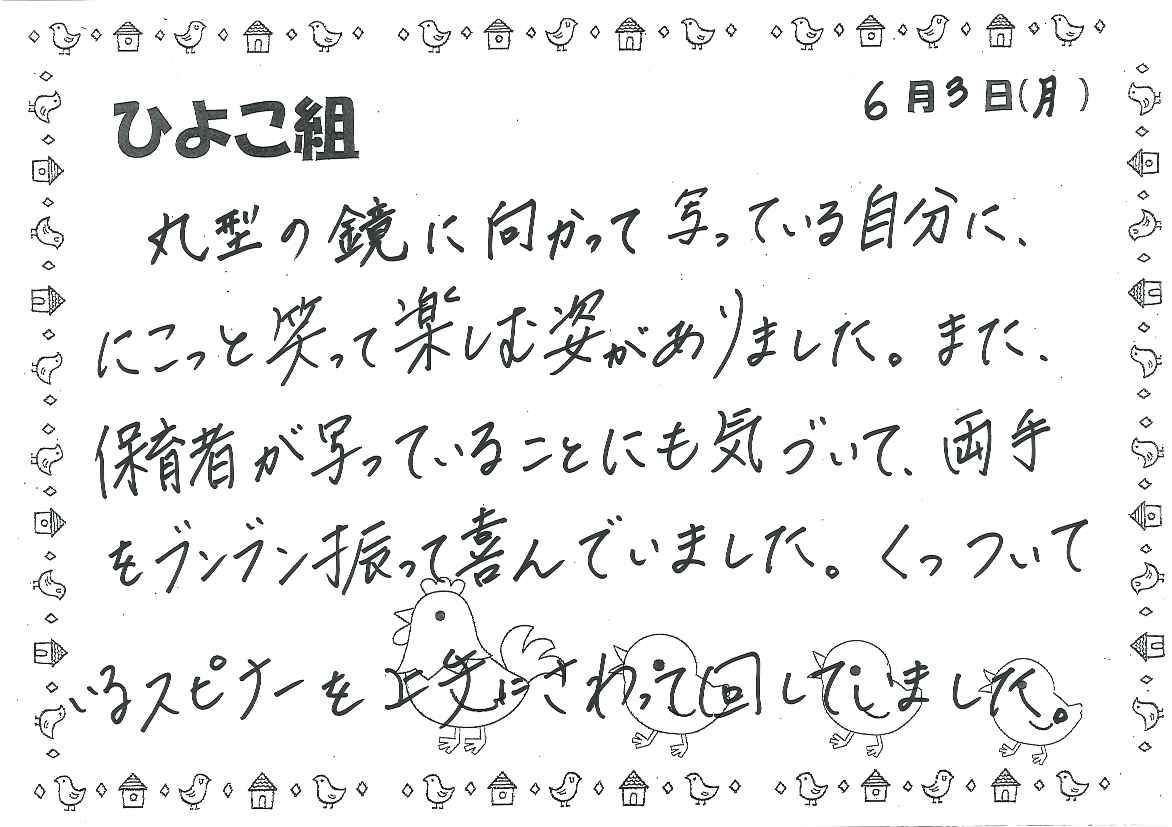 ひよこ組
6月3日(月)
丸型の鏡に向かって写っている自分に、
にこっと笑って楽しむ姿がありました。また、
保育者が写っていることにも気づいて、両手
をブンブン振って喜んでいました。くっついて
いるスピナーを上手にさわって回していました。